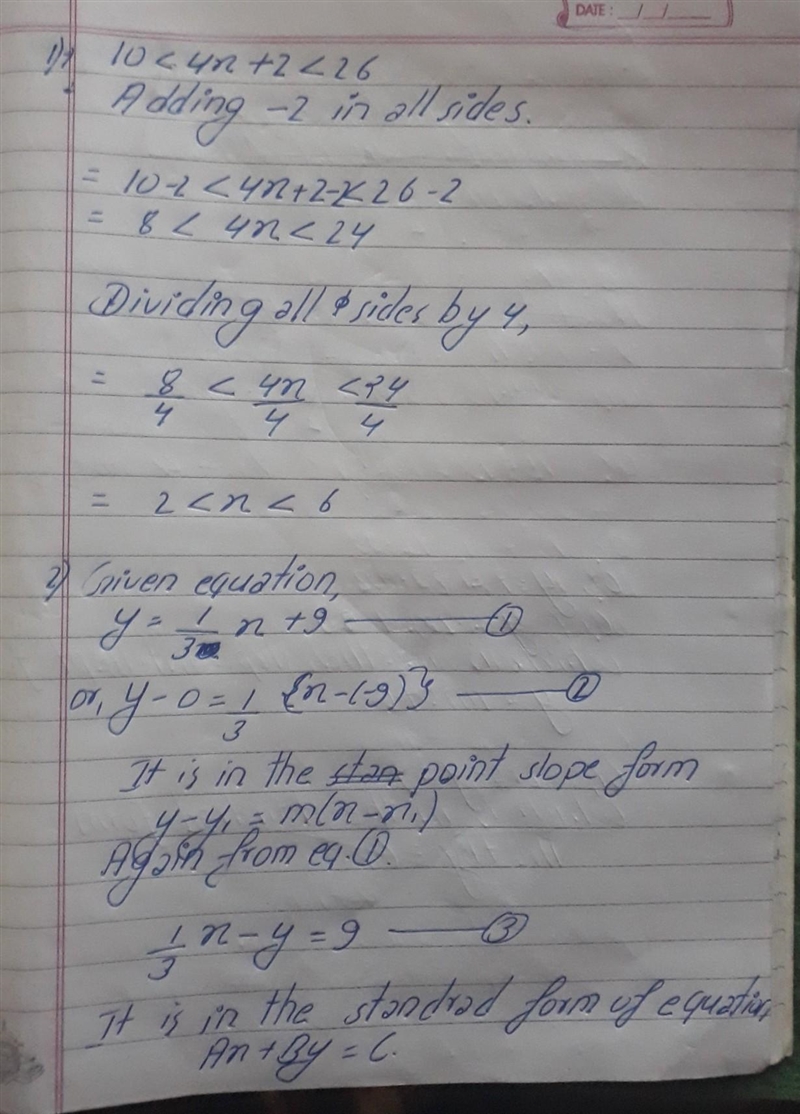 DATE: __/__/____
1) 10 < 4x + 2 < 26
Adding -2 in all sides.
= 10-2 < 4x+2-2 < 26-2
= 8 < 4x < 24
Dividing all sides by 4,
= 8/4 < 4x/4 < 24/4
= 2 < x < 6
2) Given equation,
y = 1/3 x + 9 —— ①
or, y - 0 = 1/3 {x-(-9)} —— ②
It is in the stan point slope form
y-y₁ = m(x-x₁)
Again from eq. ①.
1/3 x - y = 9 —— ③
It is in the standrad form of equation,
Ax + By = C.